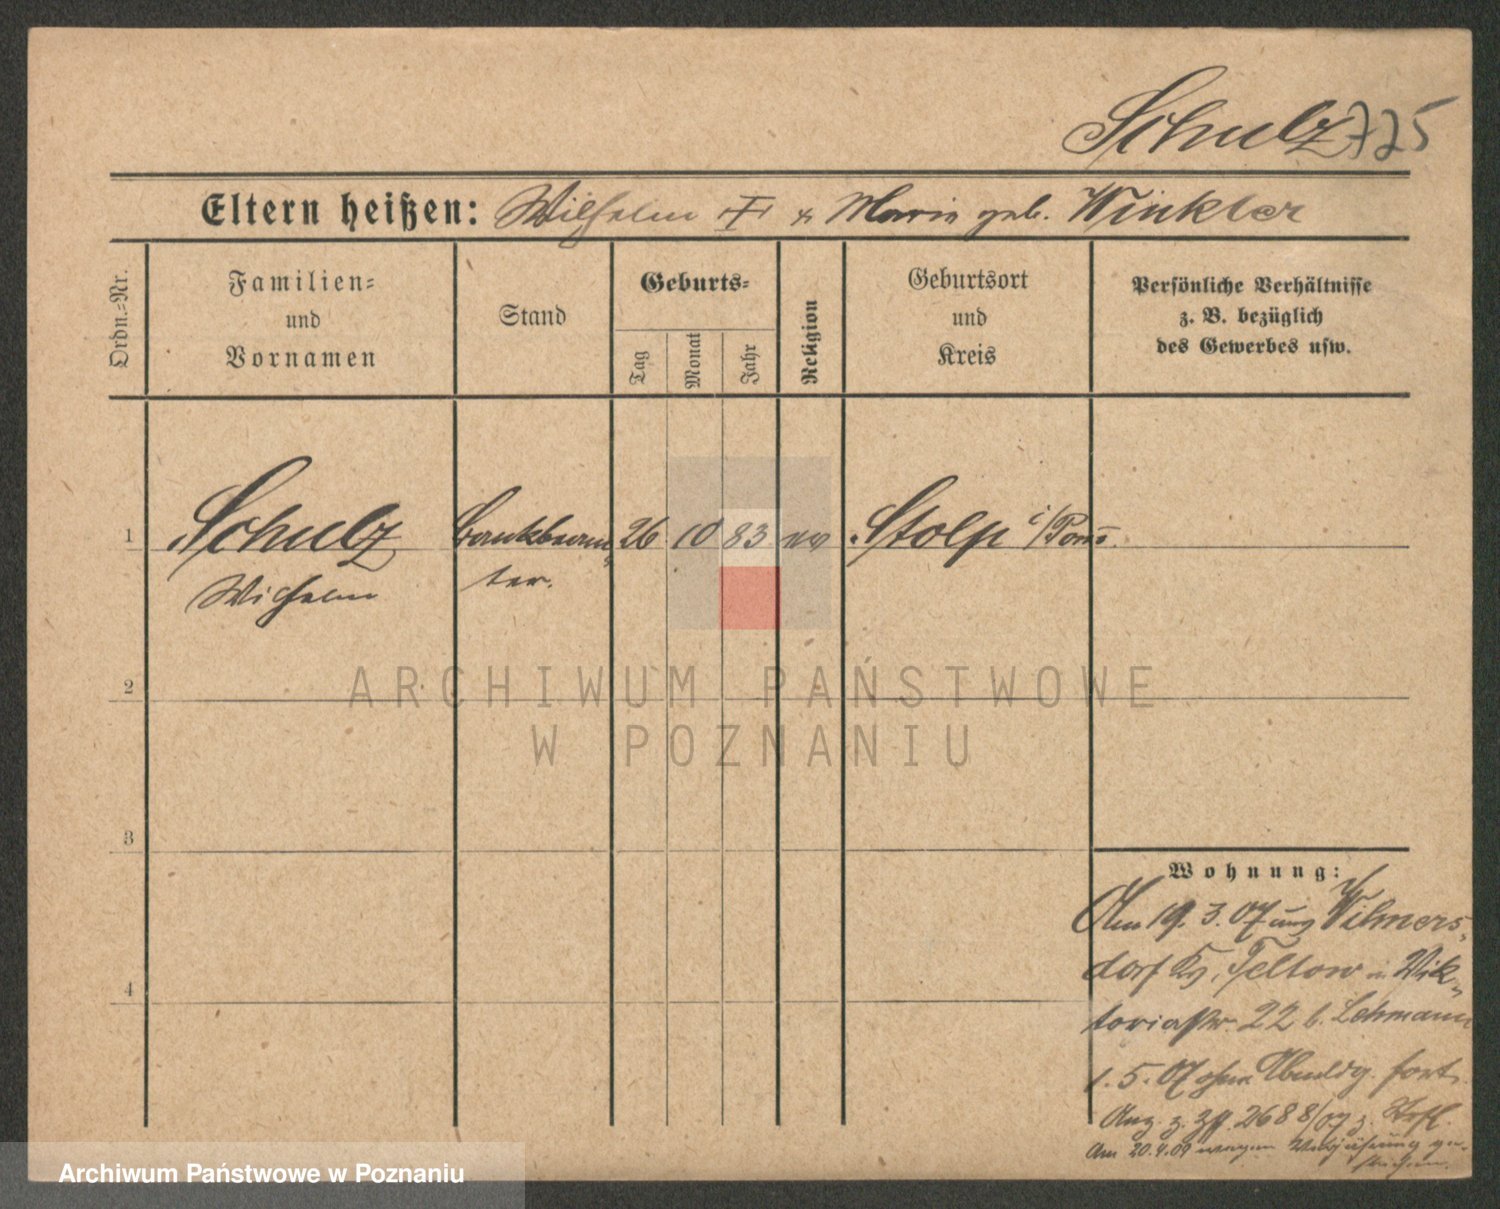 Schulz 725
Eltern heißen: Wilhelm u. Marie geb. Winkler
Ordn.-Nr.
Familien-
und
Vornamen
Stand
Geburts-
Tag
Monat
Jahr
Religion
Geburtsort
und
Kreis
Persönliche Verhältnisse
z. B. bezüglich
des Gewerbes usw.
1 Schulz Bankbeam- 26 10 83 ev Stolp i/Pom.
Wilhelm ter.
2
ARCHIWUM PAŃSTWOWE
W POZNANIU
3
Wohnung:
Am 19. 3. 07 aus Wilmers-
dorf Kr. Teltow Vik-
4
toriastr. 22 b. Lehmann
1. 5. 07 ohne Abmldg. fort
Anz. z. 2688/07 z.
Am 20.4.09 wegen Verjährung ge-
strichen.
Archiwum Państwowe w Poznaniu